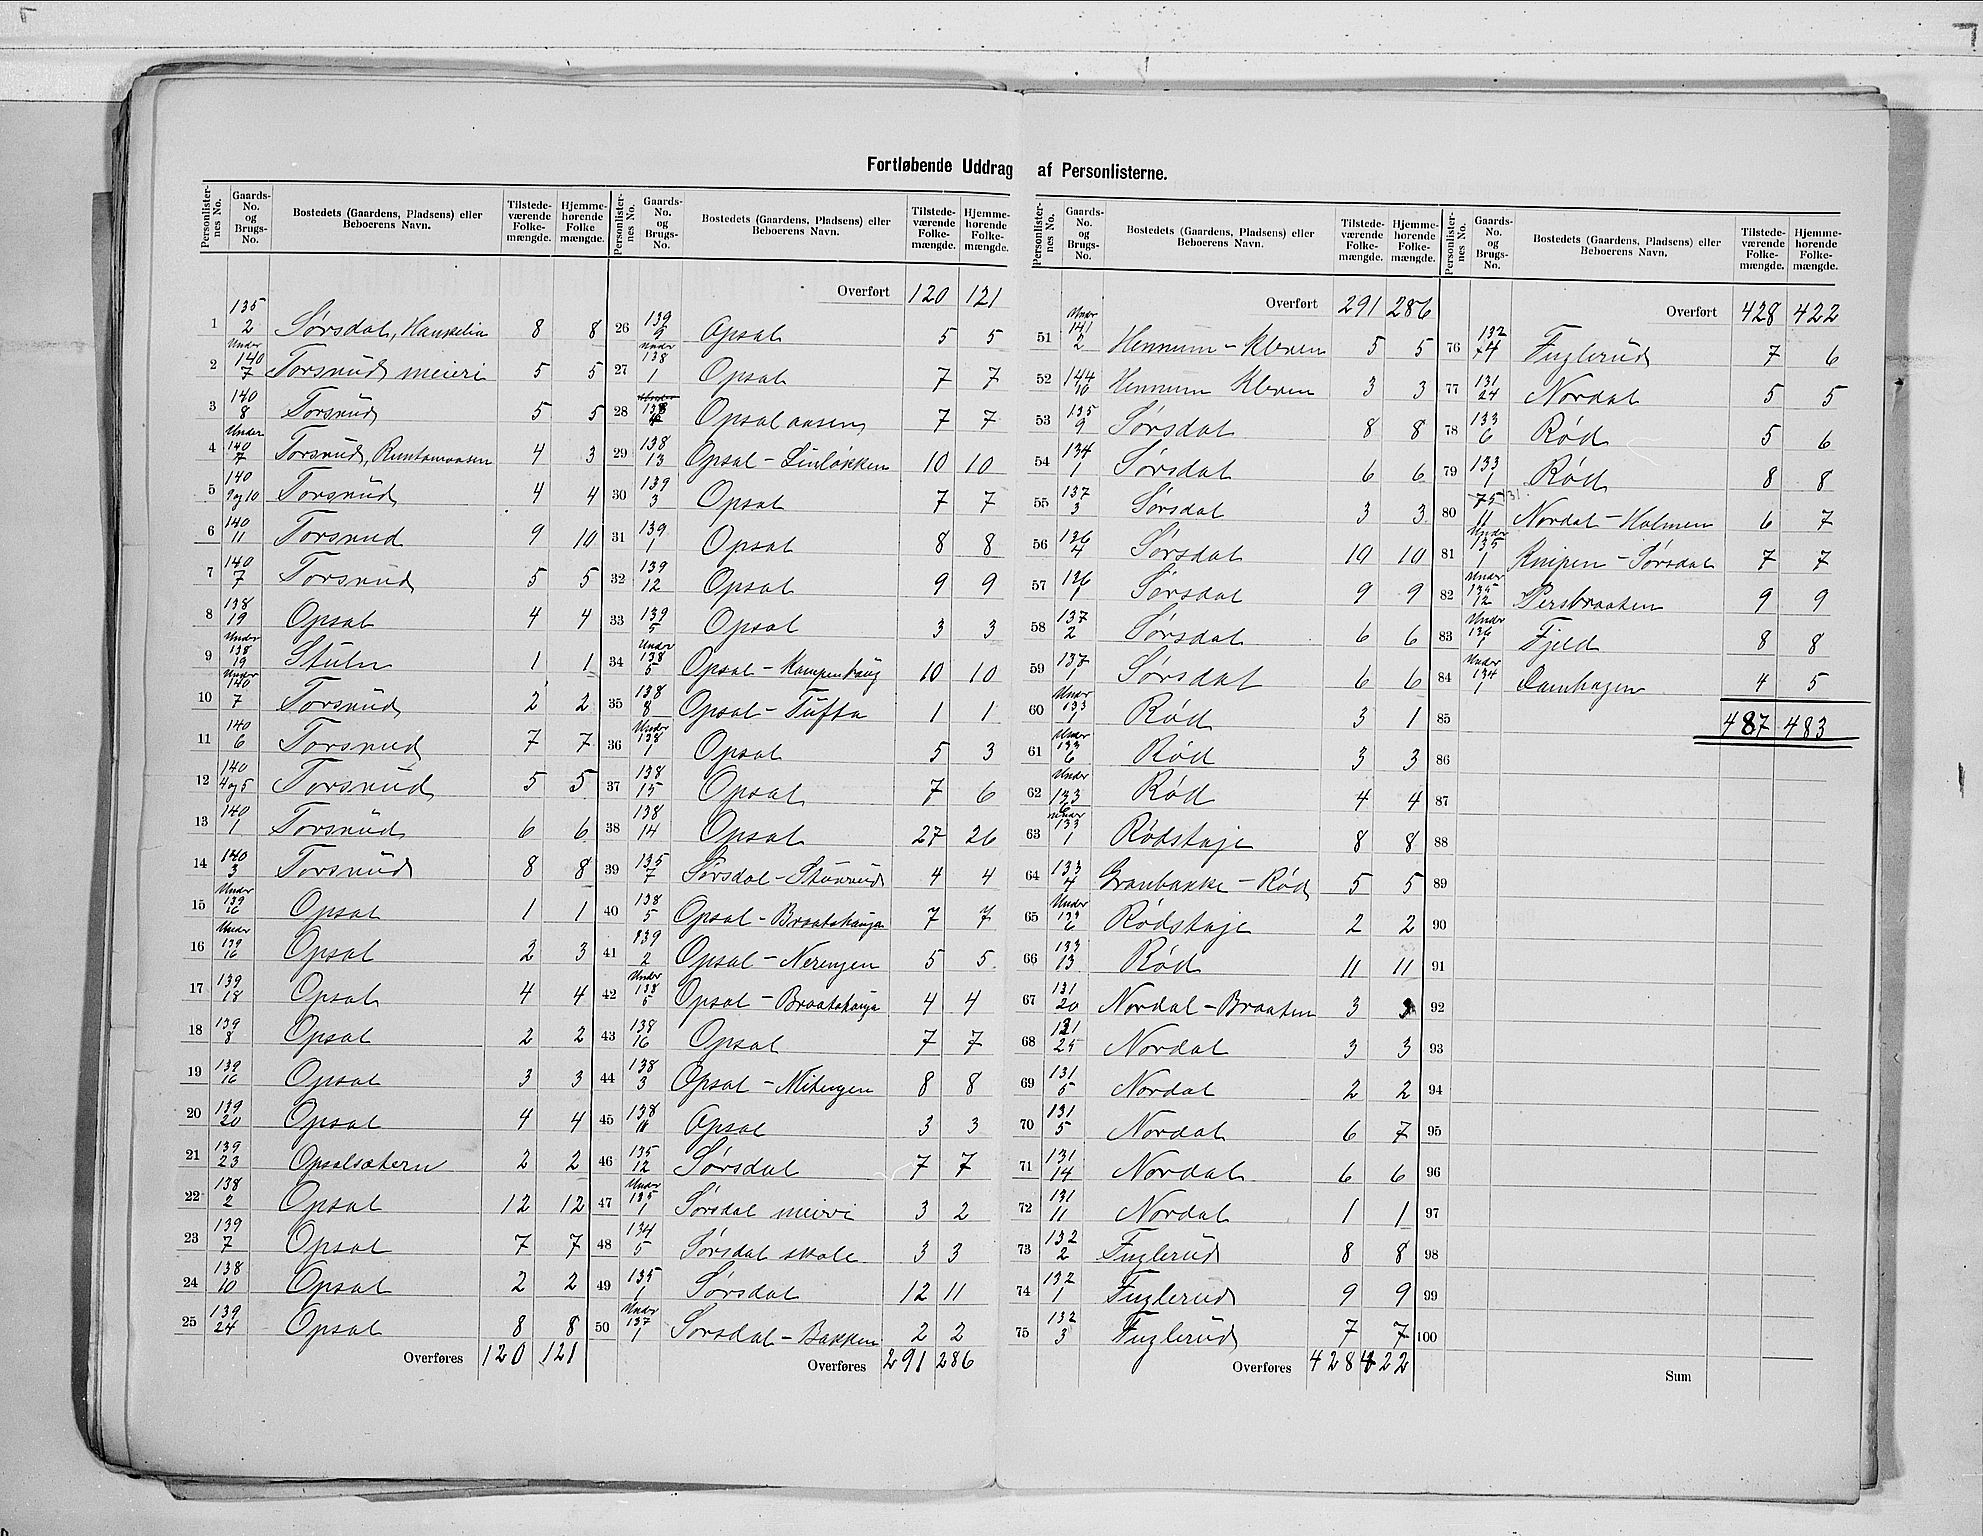 Fortløbende Uddrag af Personlisterne.
Personlister- nes No. | Gaards- No. og Brugs- No. | Bostedets (Gaardens, Pladsens) eller Beboerens Navn. | Tilstede- værende Folke- mængde. | Hjemme- hørende Folke mængde.
1 | 135 2 | Sørsdal, Hanselia | 8 | 8
2 | Under 140 7 | Torsrud meieri | 5 | 5
3 | 140 8 | Torsrud | 5 | 5
4 | Under 140 7 | Torsrud, | 4 | 3
5 | 140 9 og 10 | Torsrud | 4 | 4
6 | 140 11 | Torsrud | 9 | 10
7 | 140 7 | Torsrud | 5 | 5
8 | 138 19 | Opsal | 4 | 4
9 | Under 138 19 | Stuln | 1 | 1
10 | Under 140 7 | Torsrud | 2 | 2
11 | 140 6 | Torsrud | 7 | 7
12 | 140 4 og 5 | Torsrud | 5 | 5
13 | 140 1 | Torsrud | 6 | 6
14 | 140 3 | Torsrud | 8 | 8
15 | Under 139 16 | Opsal | 1 | 1
16 | Under 139 16 | Opsal | 2 | 3
17 | 139 18 | Opsal | 4 | 4
18 | 139 8 | Opsal | 2 | 2
19 | 139 16 | Opsal | 3 | 3
20 | 139 20 | Opsal | 4 | 4
21 | 139 23 | Opsalsætern | 2 | 2
22 | 138 2 | Opsal | 12 | 12
23 | 139 7 | Opsal | 7 | 7
24 | 138 10 | Opsal | 2 | 2
25 | 139 24 | Opsal | 8 | 8
Overføres | 120 | 121
Personlister- nes No. | Gaards- No. og Brugs- No. | Bostedets (Gaardens, Pladsens) eller Beboerens Navn. | Tilstede- værende Folke- mængde. | Hjemme- hørende Folke- mængde.
Overført | 120 | 121
26 | 139 9 | Opsal | 5 | 5
27 | Under 138 1 | Opsal | 7 | 7
28 | 138 4 | Opsalaasen | 7 | 7
29 | 138 13 | Opsal - Linløkken | 10 | 10
30 | 139 3 | Opsal | 7 | 7
31 | 139 1 | Opsal | 8 | 8
32 | 139 12 | Opsal | 9 | 9
33 | 139 5 | Opsal | 3 | 3
34 | Under 138 5 | Opsal - Kampenhaug | 10 | 10
35 | 138 8 | Opsal - Tufta | 1 | 1
36 | Under 138 1 | Opsal | 5 | 3
37 | 138 15 | Opsal | 7 | 6
38 | 138 14 | Opsal | 27 | 26
39 | 135 7 | Sørsdal - Stuverud | 4 | 4
40 | 138 5 | Opsal - Braatahauga | 7 | 7
41 | 139 2 | Opsal - Nerengen | 5 | 5
42 | Under 138 5 | Opsal - Braatahauga | 4 | 4
43 | 138 16 | Opsal | 7 | 7
44 | 138 3 | Opsal - Mitengen | 8 | 8
45 | 138 11 | Opsal | 3 | 3
46 | 135 12 | Sørsdal | 7 | 7
47 | Under 135 1 | Sørsdal meieri | 3 | 2
48 | 134 5 | Sørsdal skole | 3 | 3
49 | 135 1 | Sørsdal | 12 | 11
50 | Under 137 1 | Sørsdal - Bakken | 2 | 2
Overføres | 291 | 286
Personlister- nes No. | Gaards- No. og Brugs- No. | Bostedets (Gaardens, Pladsens) eller Beboerens Navn. | Tilstede- værende Folke- mængde. | Hjemme- hørende Folke- mængde.
Overført | 291 | 286
51 | Under 141 2 | Hennum - Kleven | 5 | 5
52 | 144 10 | Hennum Kleven | 3 | 3
53 | 135 9 | Sørsdal | 8 | 8
54 | 134 1 | Sørsdal | 6 | 6
55 | 137 3 | Sørsdal | 3 | 3
56 | 136 4 | Sørsdal | 10 | 10
57 | 136 1 | Sørsdal | 9 | 9
58 | 137 2 | Sørsdal | 6 | 6
59 | 137 1 | Sørsdal | 6 | 6
60 | Under 133 1 | Rød | 3 | 1
61 | Under 133 6 | Rød | 3 | 3
62 | Under 133 6 | Rød | 4 | 4
63 | Under 133 1 | Rødshaje | 8 | 8
64 | 133 4 | Granbakke - Rød | 5 | 5
65 | Under 133 6 | Rødshaje | 2 | 2
66 | 133 13 | Rød | 11 | 11
67 | 131 20 | Nordal - Braaten | 3 | 3
68 | 131 25 | Nordal | 3 | 3
69 | 131 5 | Nordal | 2 | 2
70 | 131 5 | Nordal | 6 | 7
71 | 131 14 | Nordal | 6 | 6
72 | 131 11 | Nordal | 1 | 1
73 | 132 2 | Fuglerud | 8 | 8
74 | 132 1 | Fuglerud | 9 | 9
75 | 132 3 | Fuglerud | 7 | 7
Overføres | 428 | 422
Personlister- nes No. | Gaards- No. og Brugs- No. | Bostedets (Gaardens, Pladsens) eller Beboerens Navn. | Tilstede- værende Folke- mængde. | Hjemme- hørende Folke- mængde.
Overført | 428 | 422
76 | 132 4 | Fuglerud | 7 | 6
77 | 131 24 | Nordal | 5 | 5
78 | 133 6 | Rød | 5 | 6
79 | 133 1 | Rød | 8 | 8
80 | 75 131. 11 | Nordal - Holmen | 6 | 7
81 | Under 135 1 | Knipen - Sørsdal | 7 | 7
82 | Under 135 12 | Persbraaten | 9 | 9
83 | Under 136 1 | Fjeld | 8 | 8
84 | Under 134 1 | Damhagen | 4 | 5
85 | 487 | 483
86
87
88
89
90
91
92
93
94
95
96
97
98
99
100
Sum